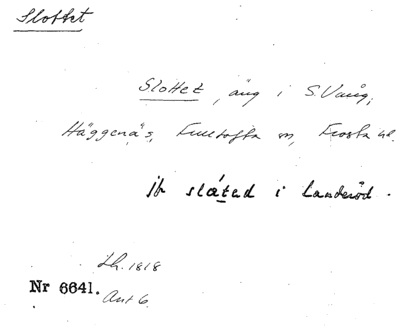 Slottet
Slottet, äng i S. Vång,
Häggenäs, Fulltofta sn, Frosta hd.
jfr slåtad i Landeröd.
Lh. 1818
Nr 6641.
Ant 6.